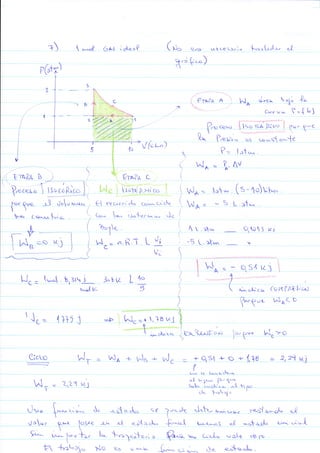 7) 1 mol GAS ideal (No era necesario trasladar el
gráfico)
P(atm)
2
1
B
A
C
5
10
V(Litros)
ETAPA A) WA área bajo la
curva P=f(V)
Proceso ISOBÁRICO porque
la Presión es constante
P = 1 atm.
WA = P. ΔV
WA = 1 atm. (5-10) Litros
WA = - 5 L atm.
1 L atm — 0,1013 KJ
-5 L atm — x
WA = - 0,51 KJ
indica COMPRESIÓN
porque WA<0
ETAPA B
Proceso ISOCÓRICO
porque el volumen
es constante
WB = 0 KJ
ETAPA C
WC ISOTÉRMICO
El recorrido coincide
con las isotermas de
Boyle.
WC = n.R.T. L Vf/Vi
WC = 1 mol. 8,314 J/mol K L 10/5
WC = 1775 J => WC = +1,78 KJ
indica EXPANSIÓN porque WC>0
CICLO WT = WA + WB + WC = + 0,51 + 0 + 1,78 = 2,29 KJ
WT = 2,29 KJ
Una función de estado se puede determinar restando el
valor que posee en el estado final menos el estado inicial
sin importar la trayectoria. Para un ciclo vale cero.
El trabajo NO es una función de estado.